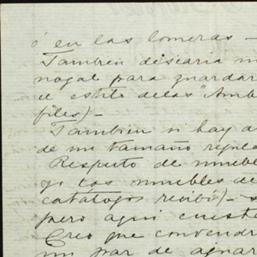 ó en las lomeras —
Tambien desearia un
nogal para guardar
el estilo de las "Amb
files) —
Tambien si hay a
de un tamaño regula
Respecto de mueble
go los muebles de
catálogos recibo) — s
pero aqui cuesta
Creo que convendr
un par de